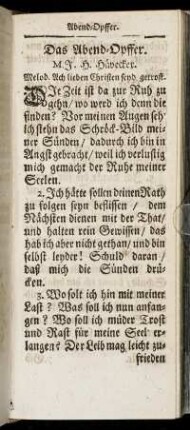 Abend-Opffer.
Das Abend-Opffer.
M. J. H. Hävecker.
Melod. Ach lieben Christen seyd getrost.
DIe Zeit ist da zur Ruh zu
gehn / wo werd ich denn die
finden? Vor meinen Augen seh
ich stehn das Schröck-Bild mei-
ner Sünden / dadurch ich bin in
Angst gebracht / weil ich verlustig
mich gemacht der Ruhe meiner
Seelen.
2. Ich hätte sollen deinen Rath
zu folgen seyn beflissen / dem
Nächsten dienen mit der That /
und halten rein Gewissen / das
hab ich aber nicht gethan / und bin
selbst leyder! Schuld daran /
daß mich die Sünden drü-
cken.
3. Wo solt ich hin mit meiner
Last? Was soll ich nun anfan-
gen? Wo soll ich müder Trost
und Rast für meine Seel er-
langen? Der Leib mag leicht zu-
frieden